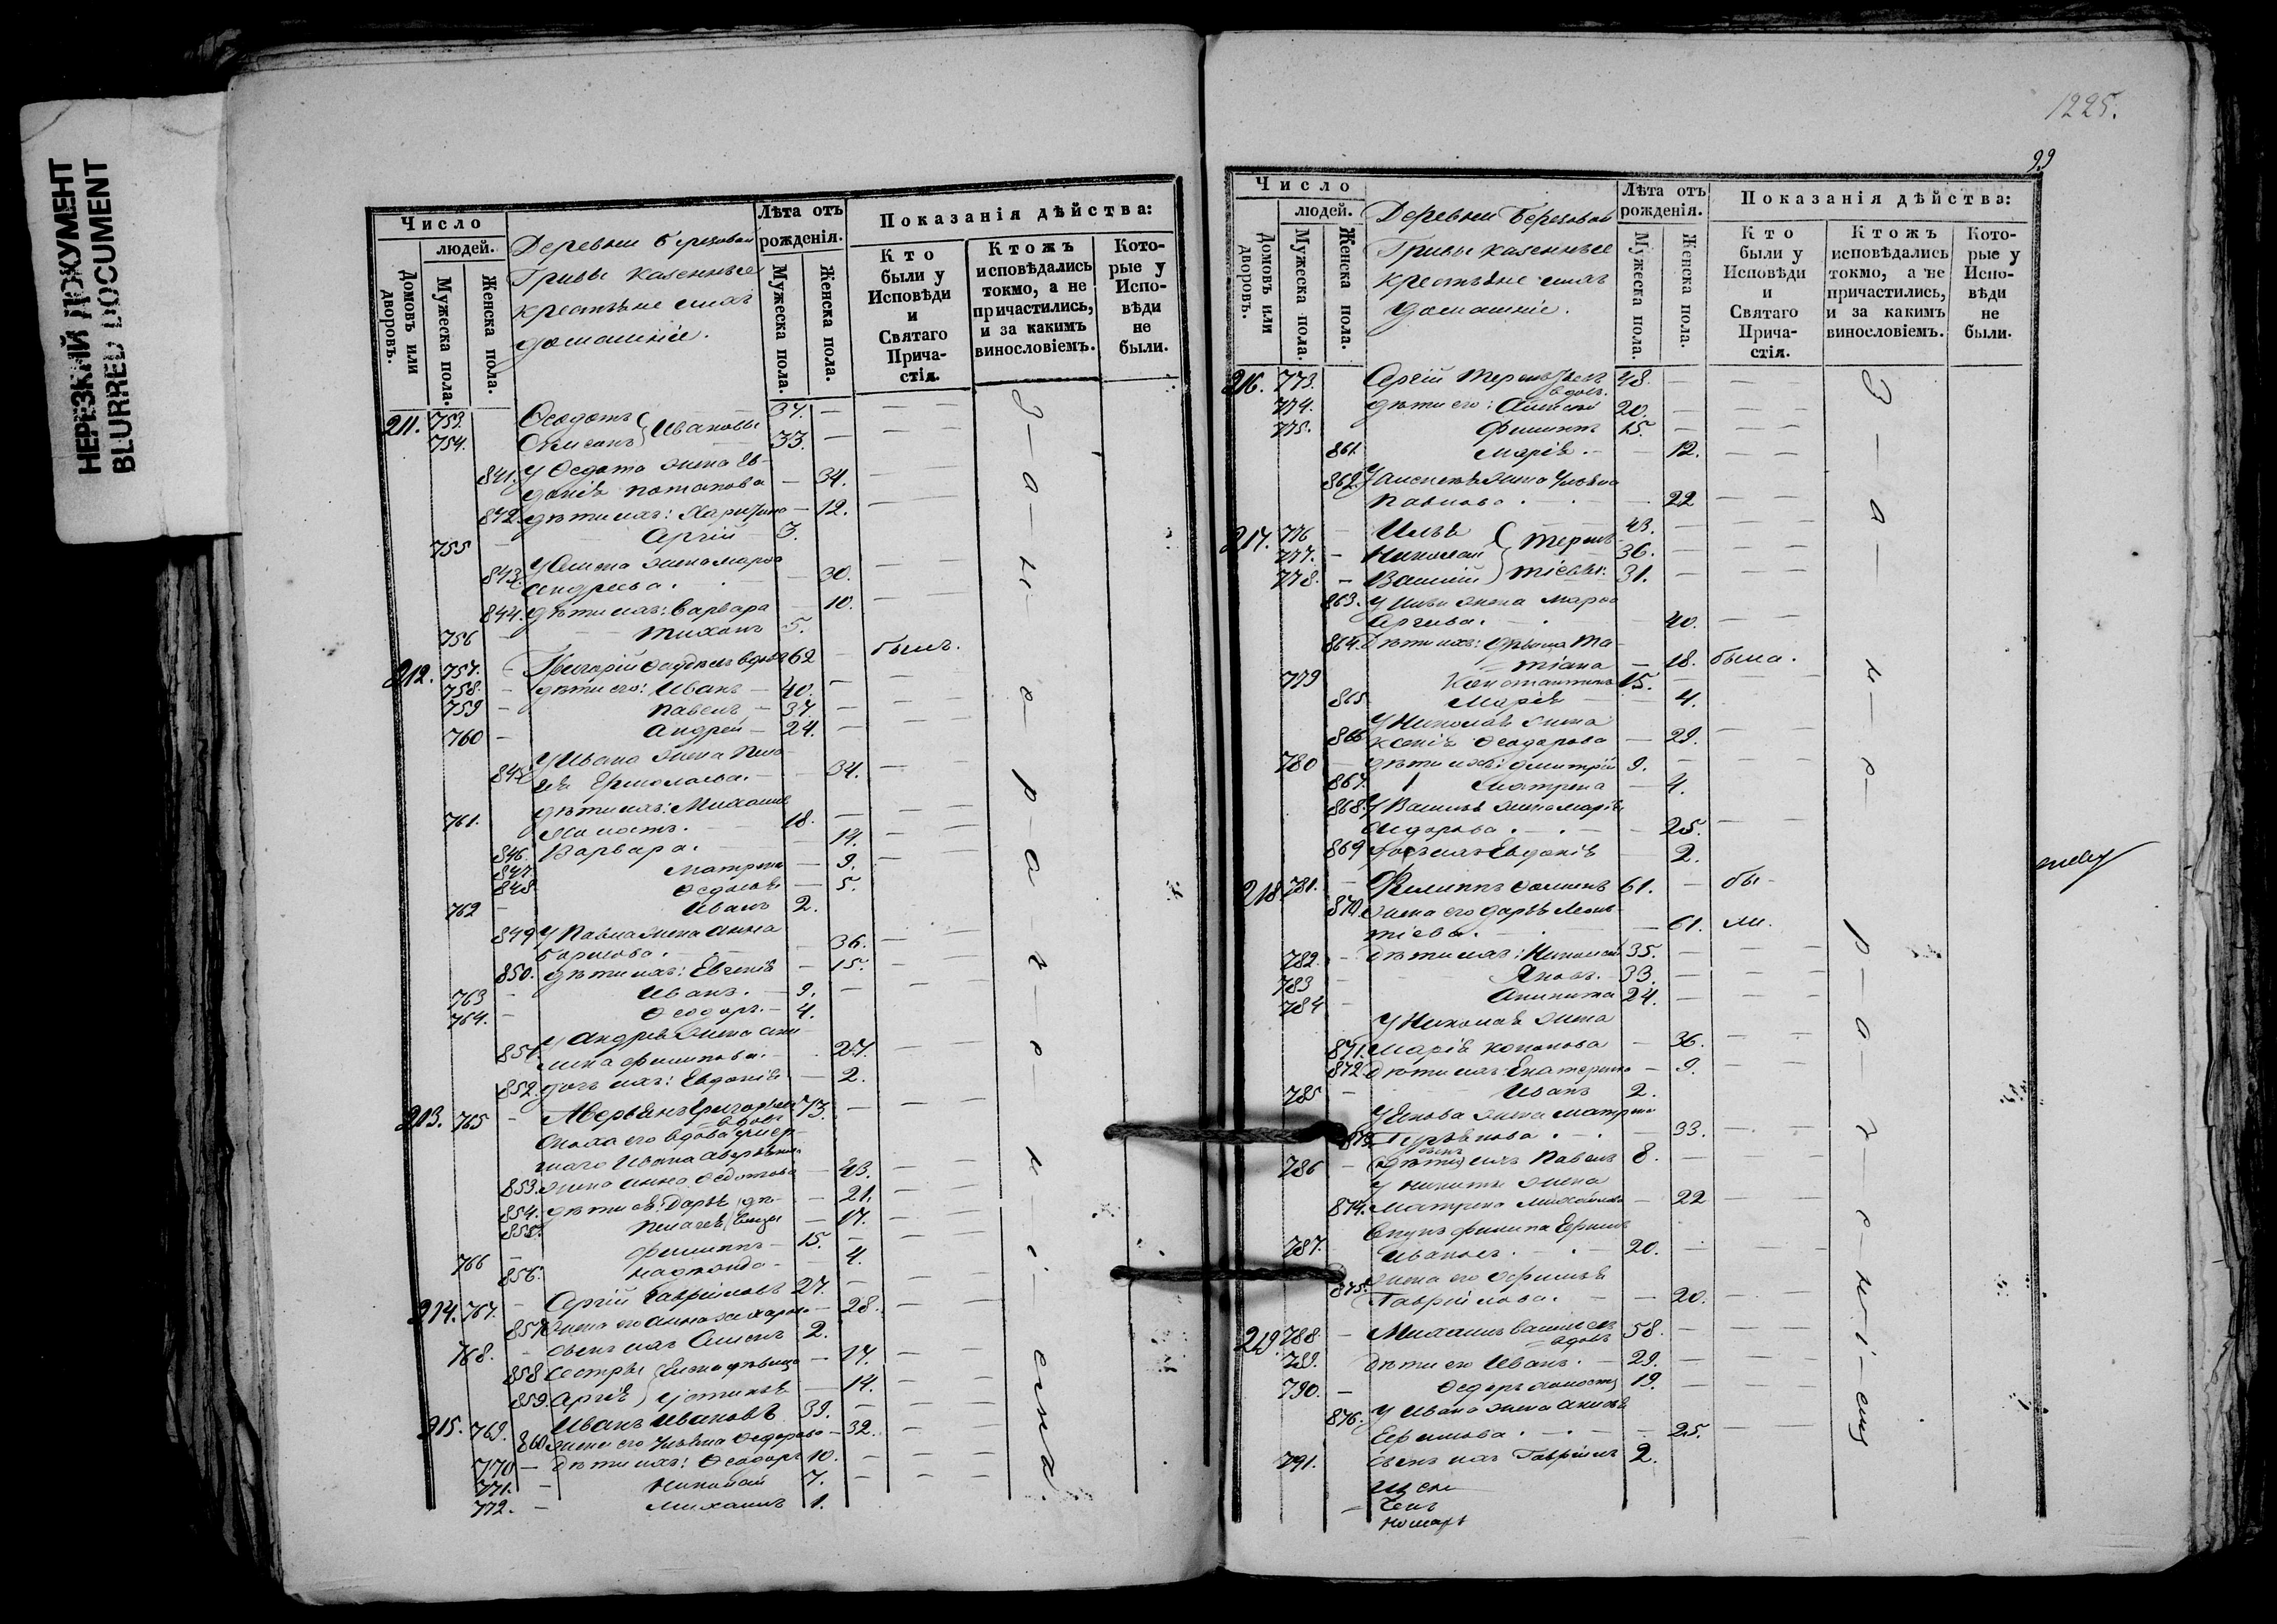 НЕРЕЗКИЙ ДОКУМЕНТ
BLURRED DOCUMENT
Число
людей.
Домовъ или дворовъ.
Мужеска пола.
Женска пола.
Деревни Березовой
Гривы казенные
крестьяне и ихъ
домашніе.
Лѣта отъ рожденія.
Мужеска пола.
Женска пола.
Показанія дѣйства:
Кто были у Исповѣди и Святаго Причастія.
Ктожъ исповѣдались токмо, а не причастились, и за какимъ винословіемъ.
Которые у Исповѣди не были.
211. 753. Ѳеодотъ Ивановы 37.
754. 33.
841. У Ѳедота жена Ев-
докія Потапова 34.
842. дѣти ихъ: Харитина 12.
755 Сергій 3.
843. жена Марѳа
Андреева. 30.
844. дѣти ихъ: Варвара 10.
756 Тихонъ 5.
212. 757. Григорій вдовъ 62 былъ.
758. дѣти его: Иванъ 40.
759 Павелъ 37.
760 Андрей 24.
У Ивана жена Пела-
гія Ермолаева. 34.
дѣти ихъ: Михаилъ
761. холостъ. 18.
846. Варвара. 14.
847. Матрена 9.
848 Ѳедосья 5.
762 Иванъ 2.
849 У Павла жена Анна
Борисова. 36.
850. дѣти ихъ: Евгенія 15.
763 Иванъ. 9.
764. Ѳеодоръ. 4.
У Андрея жена
851. Филипова. 27.
852. дочь ихъ: Евдокія 2.
213. 765 Аверьянъ Григорьевъ 73.
вдовъ
Сноха его вдова умер-
шаго Ивана Аверьянова
853. жена Анна Ѳедотова 43.
854. дѣти ея: Дарья дѣ- 21.
855. Пелагея вицы 17.
766 Филиппъ 15.
856. 4.
214. 767. Сергій Гавриловъ 27.
857 Жена его Анна Захарова 28.
768. сынъ ихъ 2.
858 Сестры Елена дѣвица 17.
859. Сергія Устинья 14.
215. 769. Иванъ Ивановъ 39.
860 жена его Ульяна Ѳедорова 32.
770 Дѣти ихъ: Ѳеодоръ 10.
771. Николай 7.
772. Михаилъ 1.
За нерачениемъ
1225.
99
Число
людей.
Домовъ или дворовъ.
Мужеска пола.
Женска пола.
Деревни Березовой
Гривы казенные
крестьяне и ихъ
домашніе.
Лѣта отъ рожденія.
Мужеска пола.
Женска пола.
Показанія дѣйства:
Кто были у Исповѣди и Святаго Причастія.
Ктожъ исповѣдались токмо, а не причастились, и за какимъ винословіемъ.
Которые у Исповѣди не были.
216. 773. Сергій Терентьевъ 48.
вдовъ.
774. дѣти его: Алексѣй 20.
775. Филиппъ 15.
861. Марія. 12.
862. У Алексѣя жена Ульяна
Павлова 22
217. 776 Илья Терен- 43.
777. Николай тіевы. 36.
778. Василій 31.
863. У Ильи жена Марѳа
Сергѣева. 40.
864. Дѣти ихъ: дѣвица Та-
тіана 18. была.
779 Константинъ 15.
865 Марія 4.
У Николая жена
866 Ксенія Ѳеодорова 29.
780 дѣти ихъ: Дмитрій 9.
867. Матрена 4.
868. У Василья жена Марія
Сидорова 25.
869 дочь ихъ Евдокія 2.
218. 781. Филиппъ Ѳоминъ 61. бы-
870. жена его Дарья Леон-
тіева. 61. ли.
782. дѣти ихъ: Николай 35.
783 Яковъ. 33.
784 Никита 24.
У Николая жена
871. Марія Кононова 36.
872. Дѣти ихъ: Екатерина 9.
785 Иванъ 2.
У Якова жена Матрена
873. 33.
786 сынъ ихъ Павелъ 8.
У Никиты жена
874. Матрена Михайлова 22
Внукъ Филипа Ефимъ
787. Ивановъ. 20.
875. Жена его Афимья
Гаврилова. 20.
219. 788. Михаилъ Васильевъ 58.
вдовъ
789. Дѣти его Иванъ. 29.
790. Ѳедоръ холостъ 19.
876. У Ивана жена Акилина
Ефимова 25.
791. сынъ ихъ Гавріилъ 2.
За нерачениемъ